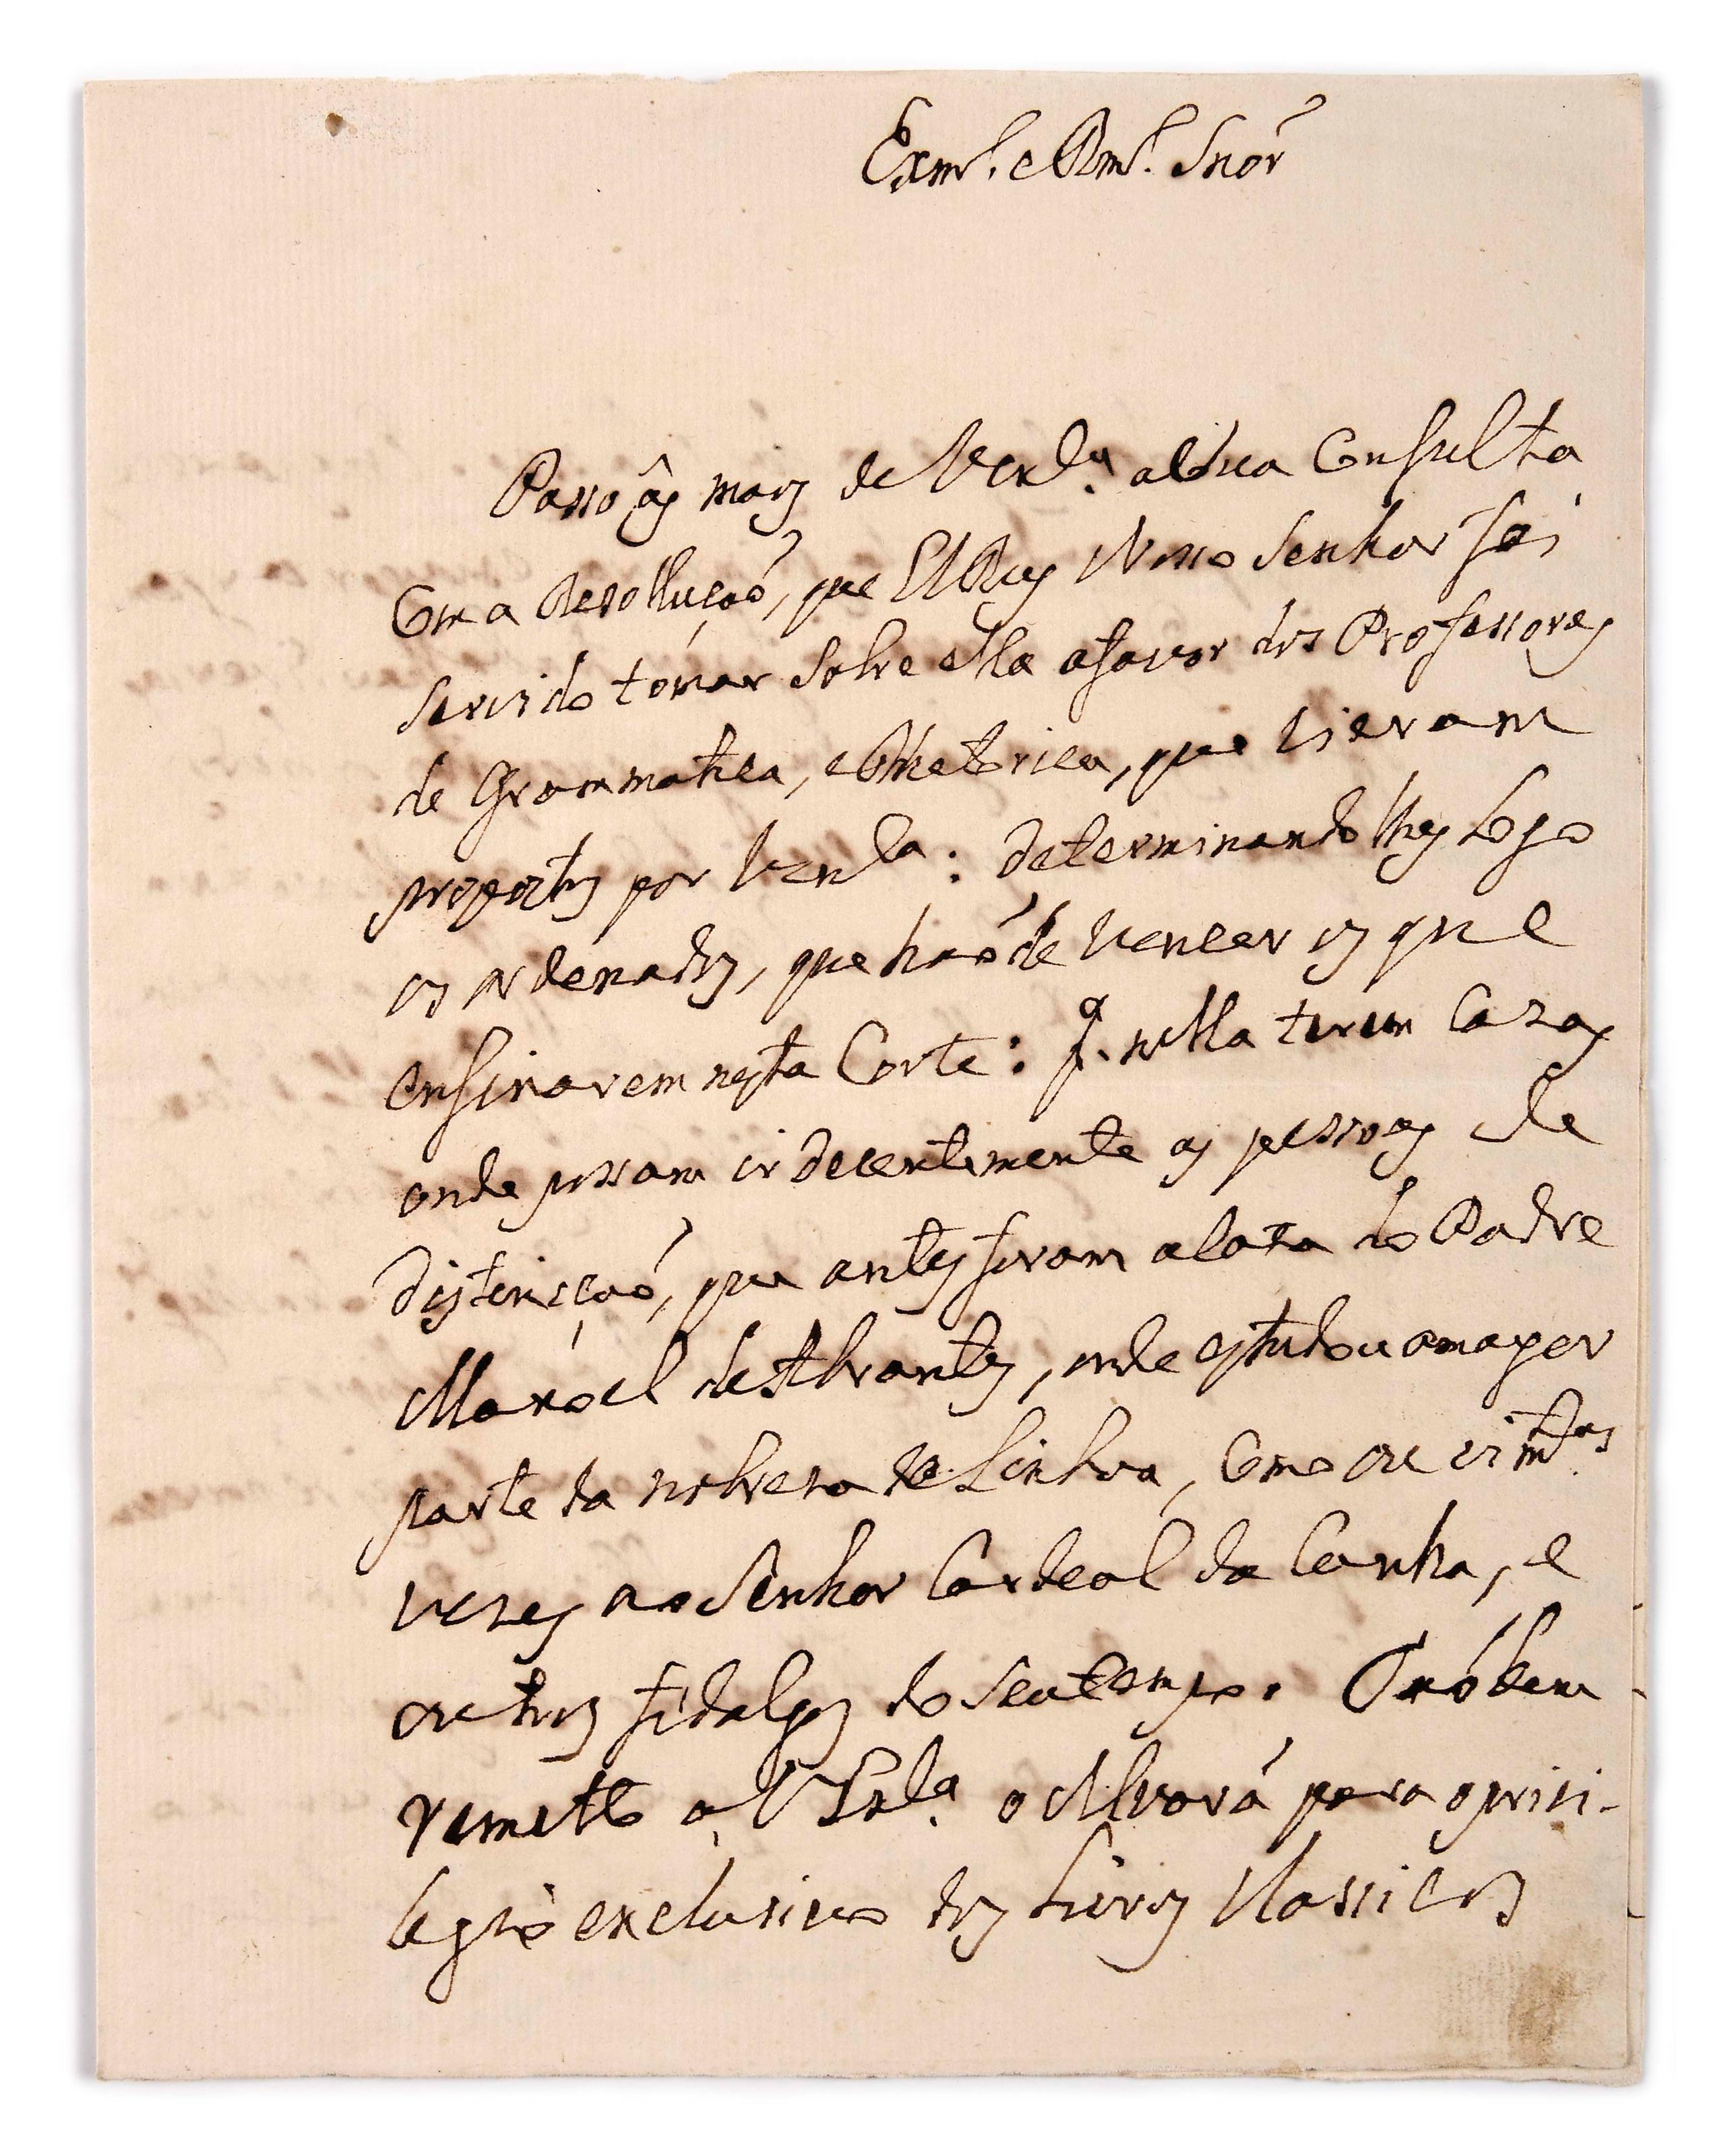 Exmo. e Rmo. Snór
Passo ás maos de V. Exla. abôca Consulta
Com a Resolluçaõ, que ElRey Nosso Senhor foi
servido tomar sobre ella afavor dos Professores
de Grammatica, e Rhetorica, que vieram
propostos por V. Exla.: Determinandolhes logo
os ordenados, que haõ de vencer os que
ensinarem nesta Corte: q. nella terem Cazas
onde possam ir decentemente as pessoas de
Distinçaõ, que antes foram a Cota do Padre
Manoel de Abrantes, onde estudou amayor
parte da nobreza de Lisboa, Como ouvi mtas.
vezes ao Senhor Cardeal da Cunha, e
outros fidalgos do seu tempo. Tambem
remetto a V. Exla. o Alvará para o privi-
legio exclusivo dos Livros Classicos